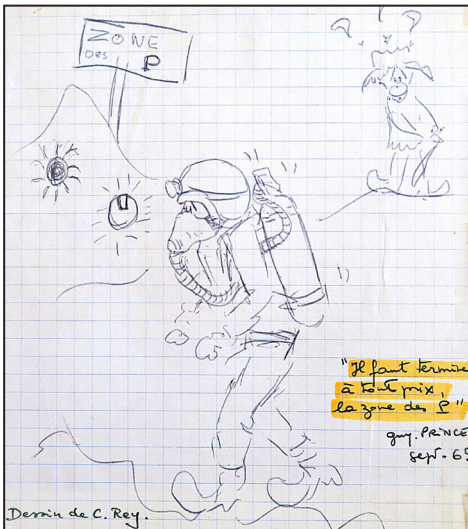 ZONE
DES P
"Il faut terminer
à tout prix,
la zone des P"
guy. PRINCE
sept. 69
Dessin de C. Rey.